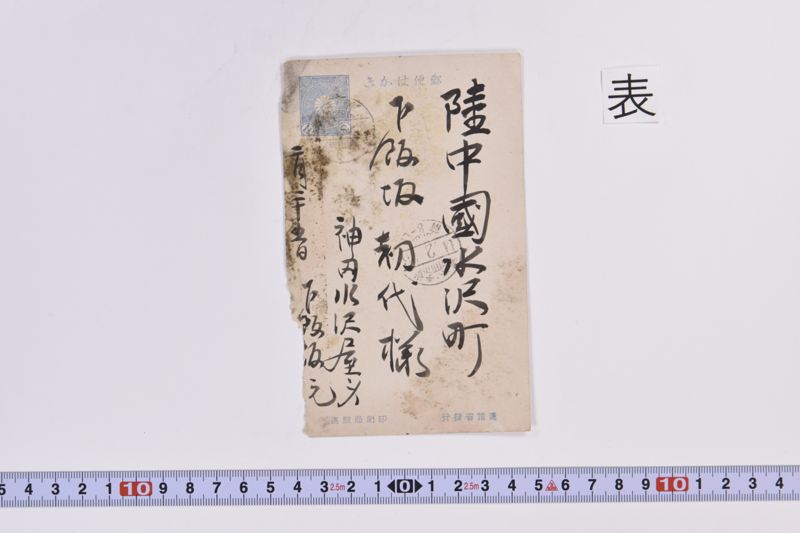 表
郵便はかき
陸中國水沢町
下飯坂 朝代様
袖内水沢屋方
下飯坂元
二月二十五日
逓信省發行
印刷局製造
5 4 3 2 1 10 9 8 7 6 5 4 3 2.5m 2 1 0 1 2 2.5m 3 4 5 6 7 8 9 10 1 2 3 4